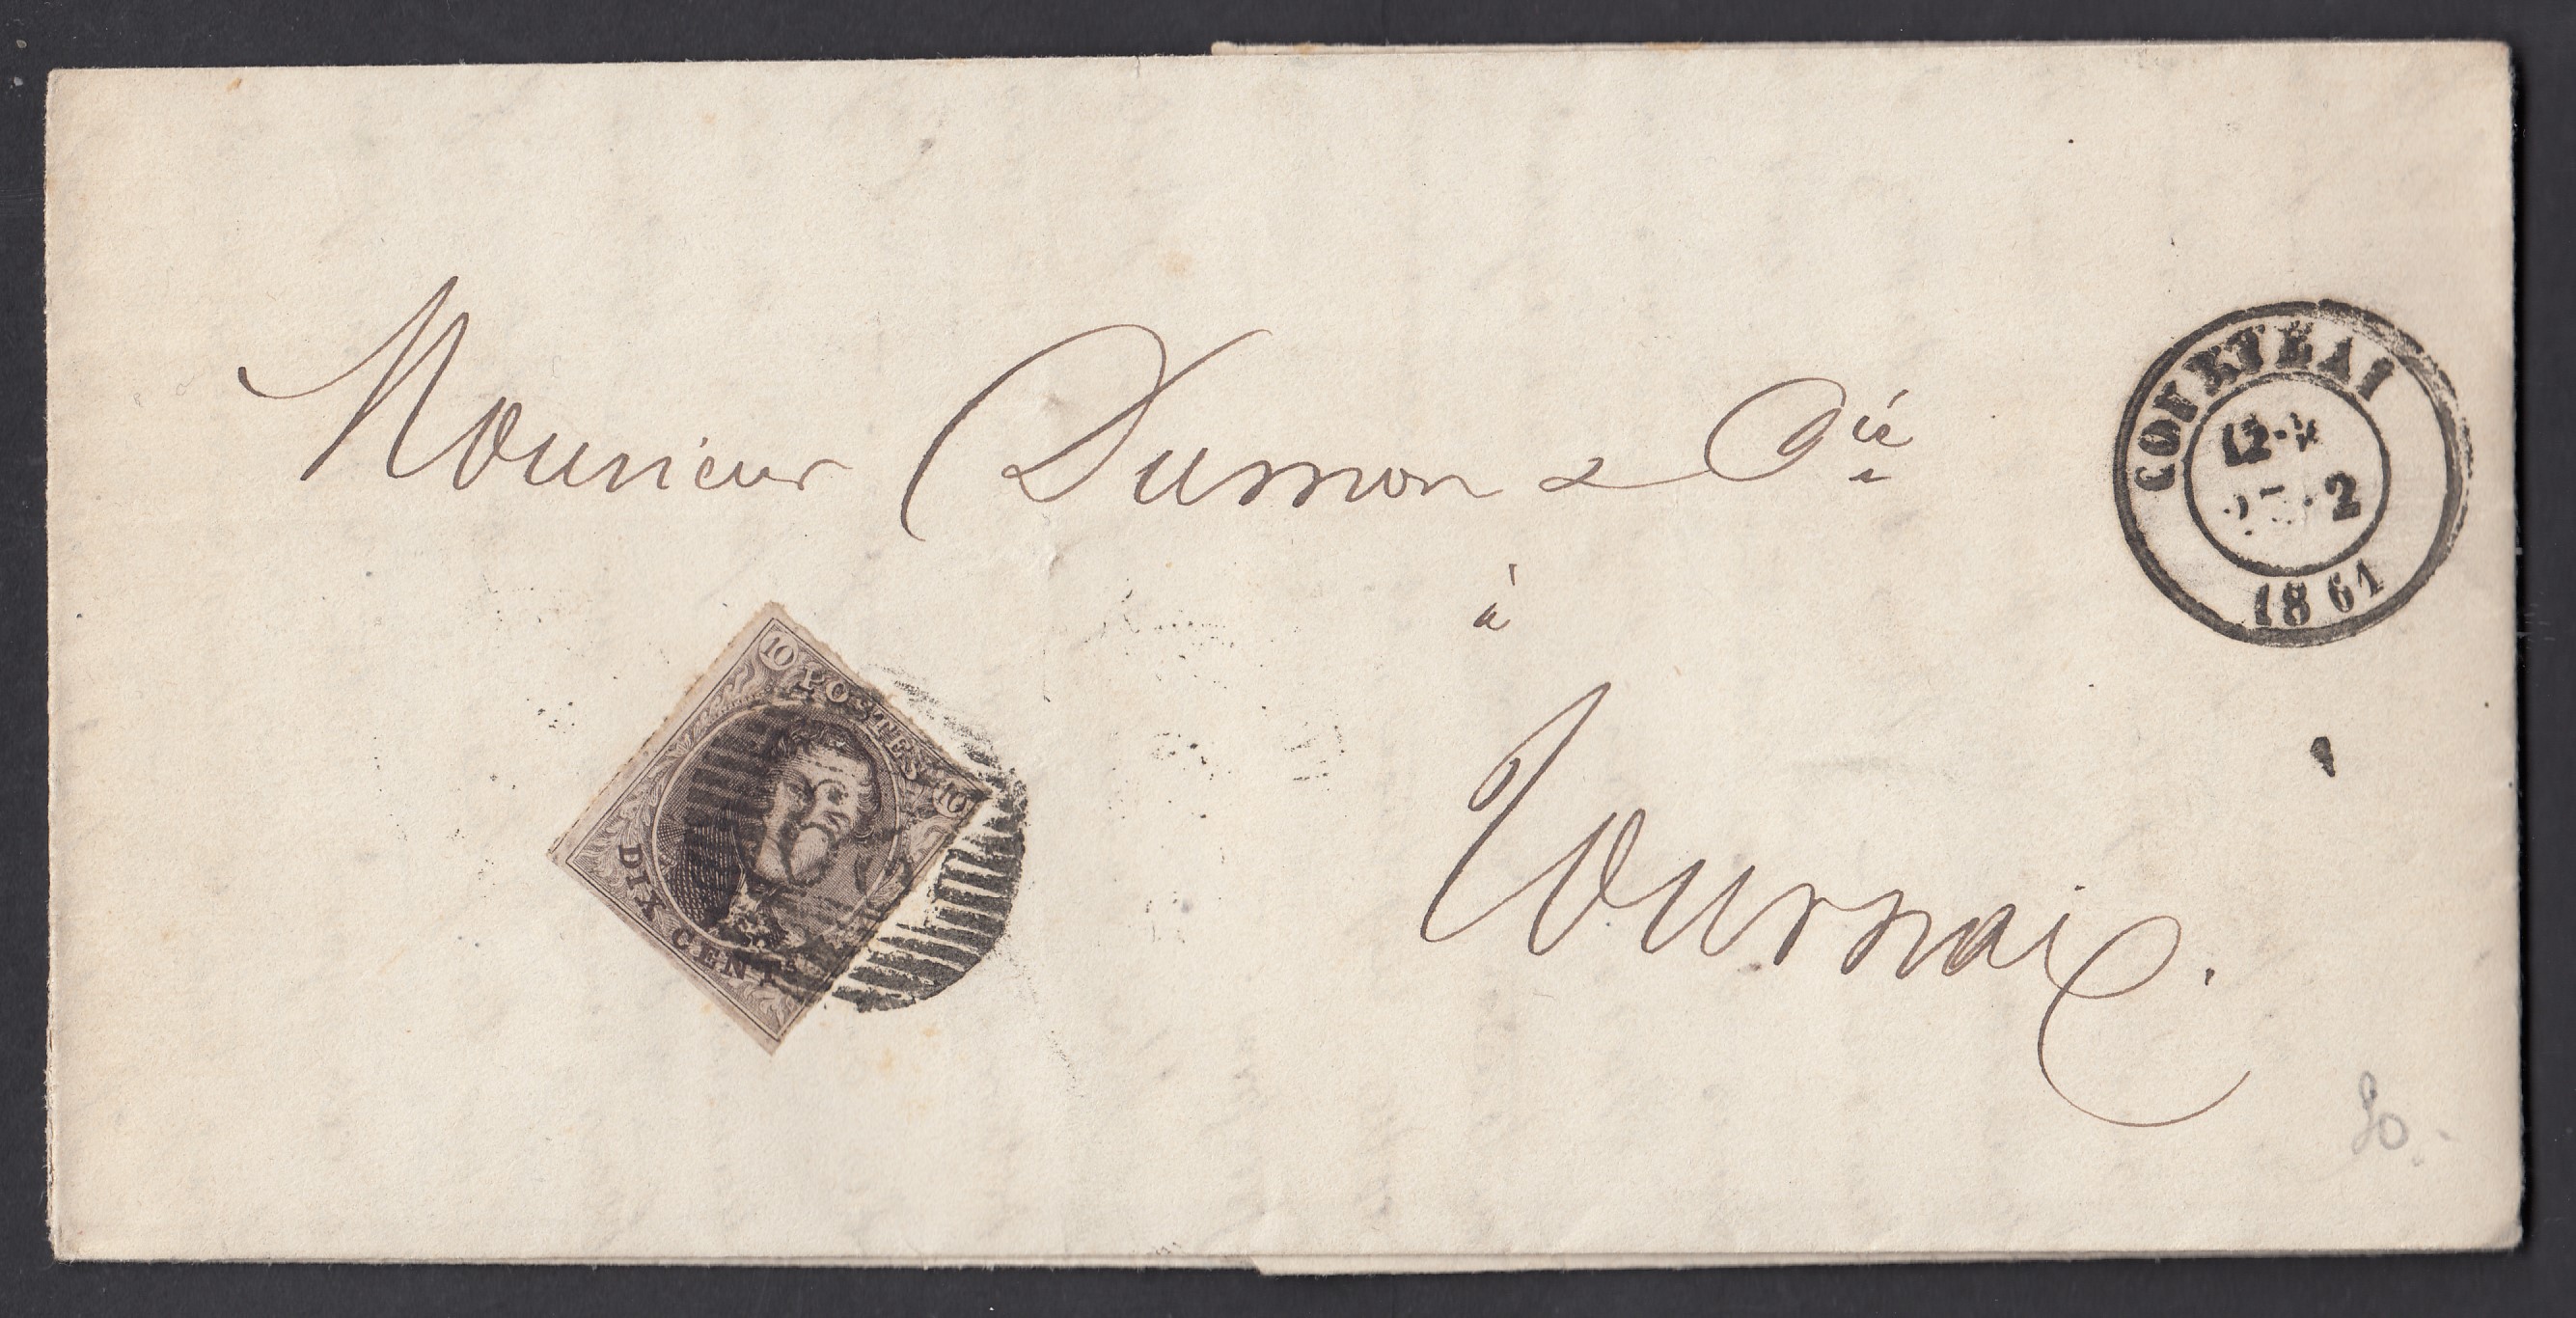 Monsieur Dumon & Cie
à
Tournai.
COURTRAI
12
2
1861
10 POSTES 10
DIX CENTS